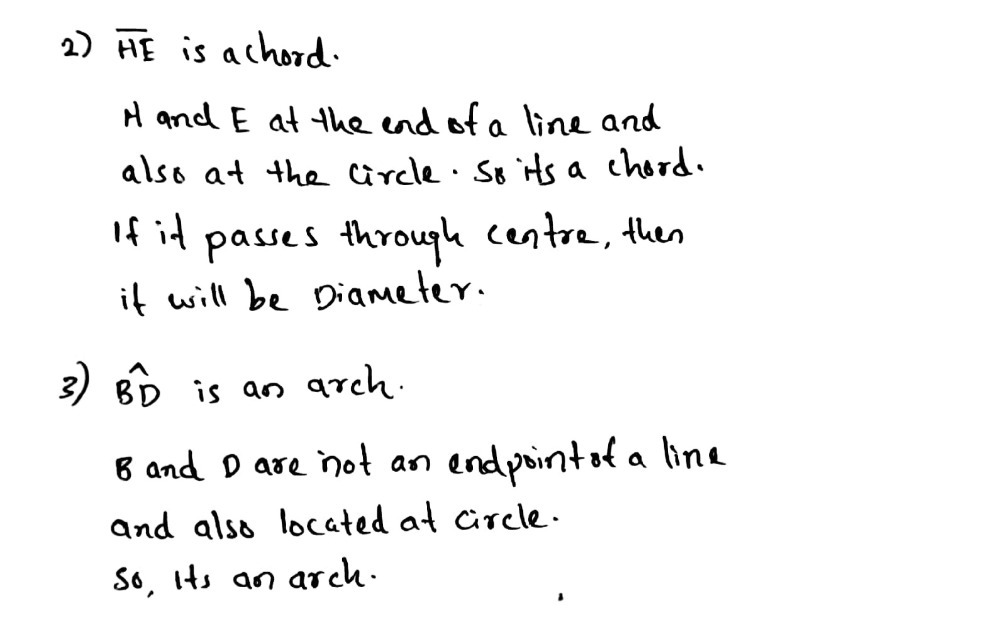 2) H̅E̅ is a chord.
H and E at the end of a line and
also at the circle. So its a chord.
If it passes through centre, then
it will be Diameter.
3) BD̂ is an arch.
B and D are not an endpoint of a line
and also located at circle.
So, its an arch.